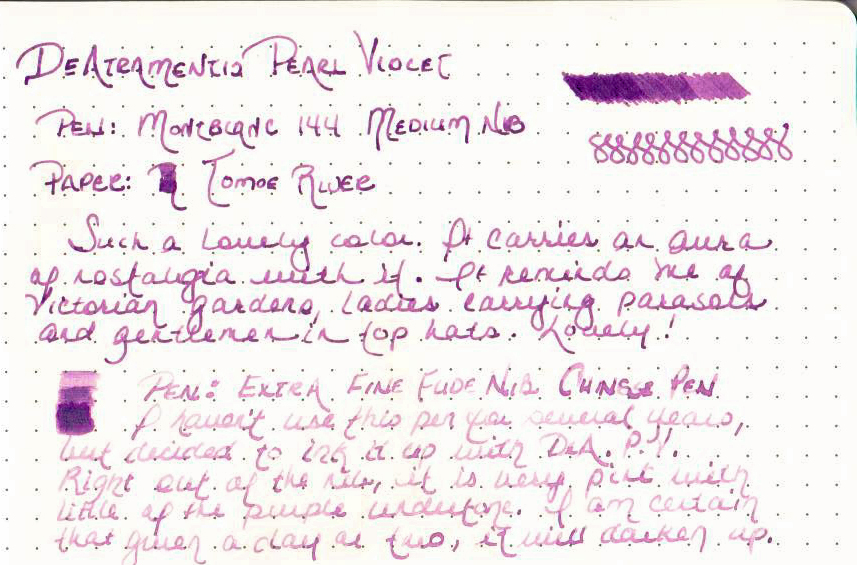 DeAtramentis Pearl Violet
Pen: Montblanc 144 Medium Nib
Paper: Tomoe River
Such a lovely color. It carries an aura
of nostalgia with it. It reminds me of
Victorian gardens, ladies carrying parasols
and gentlemen in top hats. Lovely!
Pen: Extra Fine Fude Nib Chinese Pen
I haven't use this pen for several years,
but decided to ink it up with DeA. P.V.
Right out of the nib, it is very pink with
little of the purple undertone. I am certain
that given a day or two, it will darken up.